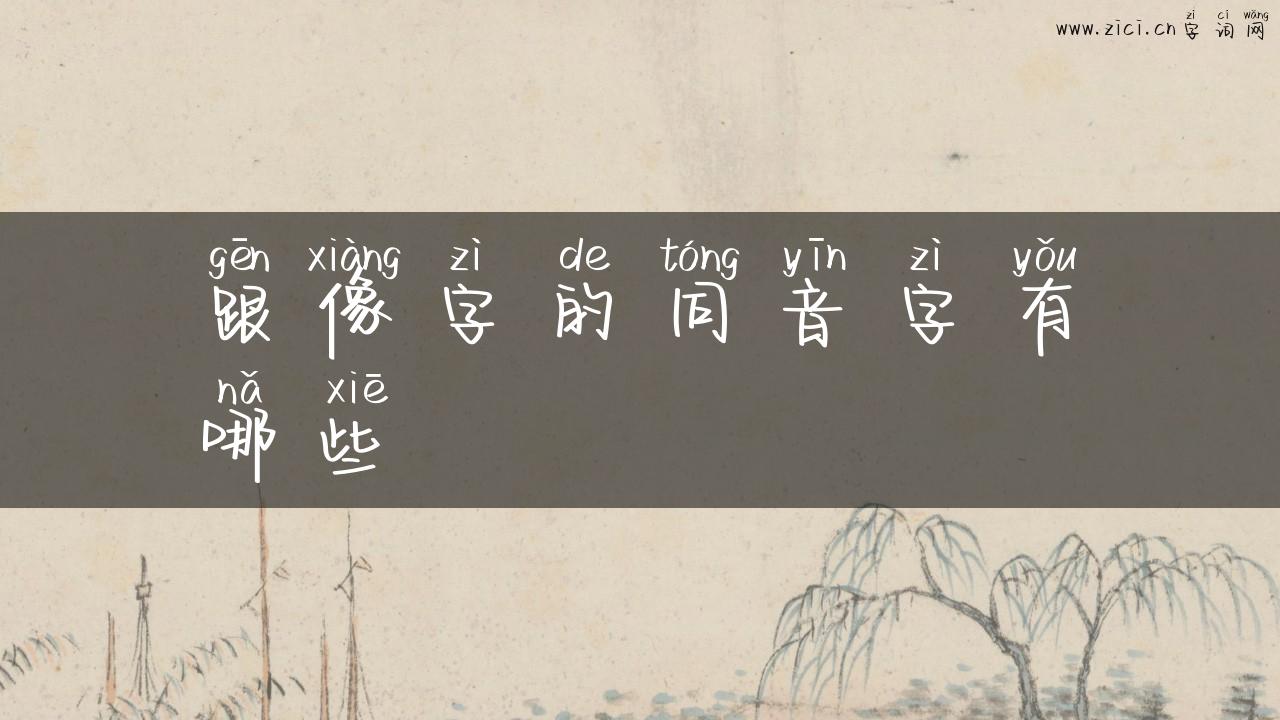 zì cí wǎng
www.zici.cn 字词网
gēn xiàng zì de tóng yīn zì yǒu
跟像字的同音字有
nǎ xiē
哪些